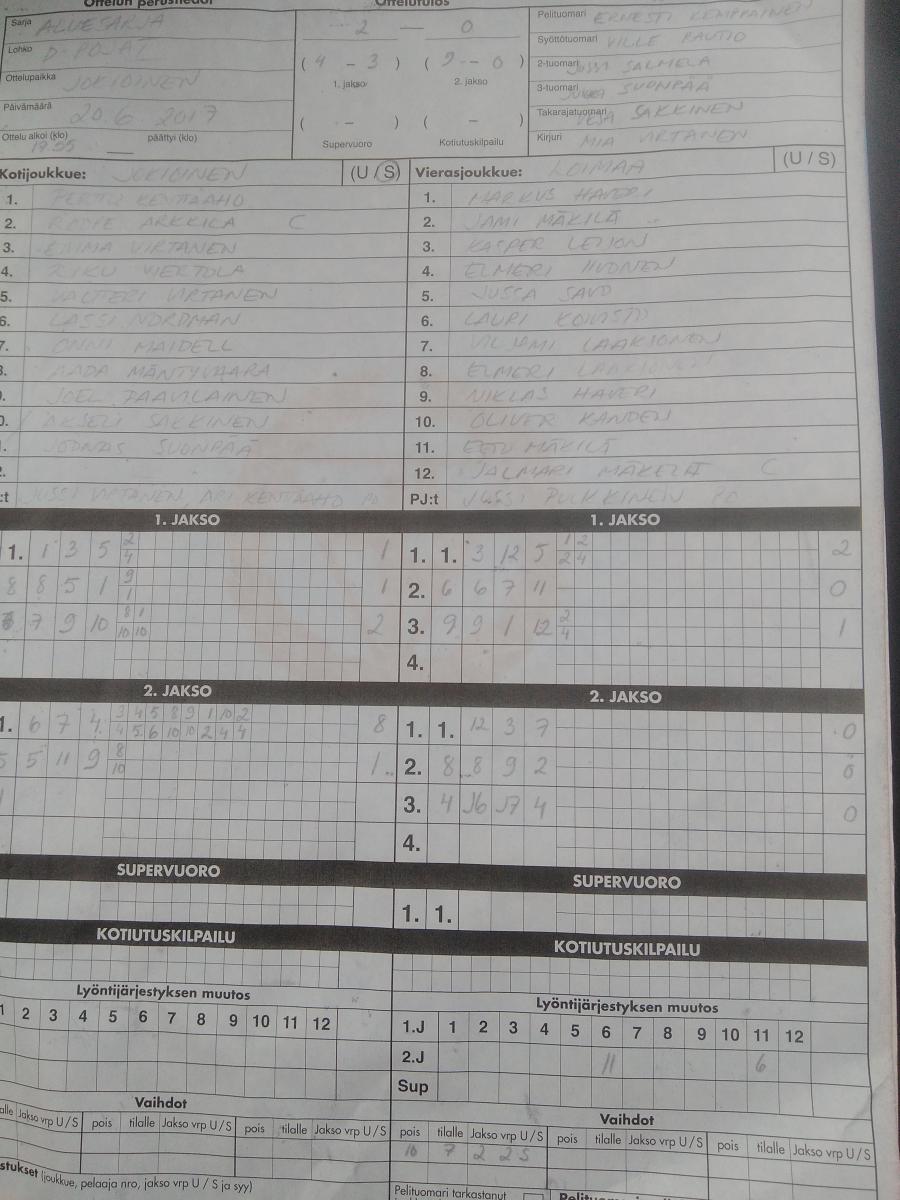 Ottelun perustiedot
Ottelutulos
Sarja ALUESARJA
Lohko D-POJAT
Ottelupaikka JOKIOINEN
Päivämäärä 20.6. 2017
Ottelu alkoi (klo) 19.55 päättyi (klo)
2 — 0
( 4 - 3 ) ( 9 - 0 )
1. jakso 2. jakso
( - ) ( - )
Supervuoro Kotiutuskilpailu
Pelituomari ERNESTI KEMPPAINEN
Syöttötuomari VILLE RAUTIO
2-tuomari JUSSI SALMELA
3-tuomari JUKKA SUONPÄÄ
Takarajatuomari VESA SAKKINEN
Kirjuri MIA VIRTANEN
Kotijoukkue: JOKIOINEN (U / S)
1. PERTTU KENTTÄAHO
2. ARKKILA C
3. VIRTANEN
4. RIKU VIERTOLA
5. VALTTERI VIRTANEN
6. LASSI NORDMAN
7. ONNI MAIDELL
8. AADA MÄNTYVAARA
JOEL PAAVILAINEN
AKSELI SAKKINEN
JOONAS SUONPÄÄ
:t JUSSI VIRTANEN, ARI KENTTÄAHO PO
Vierasjoukkue: LOIMAA (U / S)
1. MARKUS HAVERI
2. JAMI MÄKILÄ
3. KASPER LEIJON
4. ELMERI IIVONEN
5. JUSSA SAVO
6. LAURI KOIVISTO
7. VILJAMI LAAKSONEN
8. ELMERI LAAKSONEN
9. NIKLAS HAVERI
10. OLIVER KANDEN
11. EETU MÄKILÄ
12. JALMARI MÄKELÄ C
PJ:t JUSSI PULKKINEN PO
1. JAKSO
1. 1 3 5 2 1
4
8 8 5 1 9 1
1
7 9 10 8 1 2
10 10
1. JAKSO
1. 1. 3 12 5 1 2 2
2 4
2. 6 6 7 11 0
3. 9 9 1 12 2 1
4
4.
2. JAKSO
1. 6 7 4 3 4 5 8 9 1 10 2 8
4 5 6 10 10 2 4 4
5 5 11 9 8 1
10
2. JAKSO
1. 1. 12 3 7 0
2. 8 8 9 2 0
3. 4 J6 J7 4 0
4.
SUPERVUORO
SUPERVUORO
1. 1.
KOTIUTUSKILPAILU
KOTIUTUSKILPAILU
Lyöntijärjestyksen muutos
1 2 3 4 5 6 7 8 9 10 11 12
Lyöntijärjestyksen muutos
1.J 1 2 3 4 5 6 7 8 9 10 11 12
2.J 11 6
Sup
Vaihdot
alle Jakso vrp U / S pois tilalle Jakso vrp U / S pois tilalle Jakso vrp U / S
Vaihdot
pois tilalle Jakso vrp U / S pois tilalle Jakso vrp U / S pois tilalle Jakso vrp U / S
10 7 2 2 S
stukset (joukkue, pelaaja nro, jakso vrp U / S ja syy)
Pelituomari tarkastanut